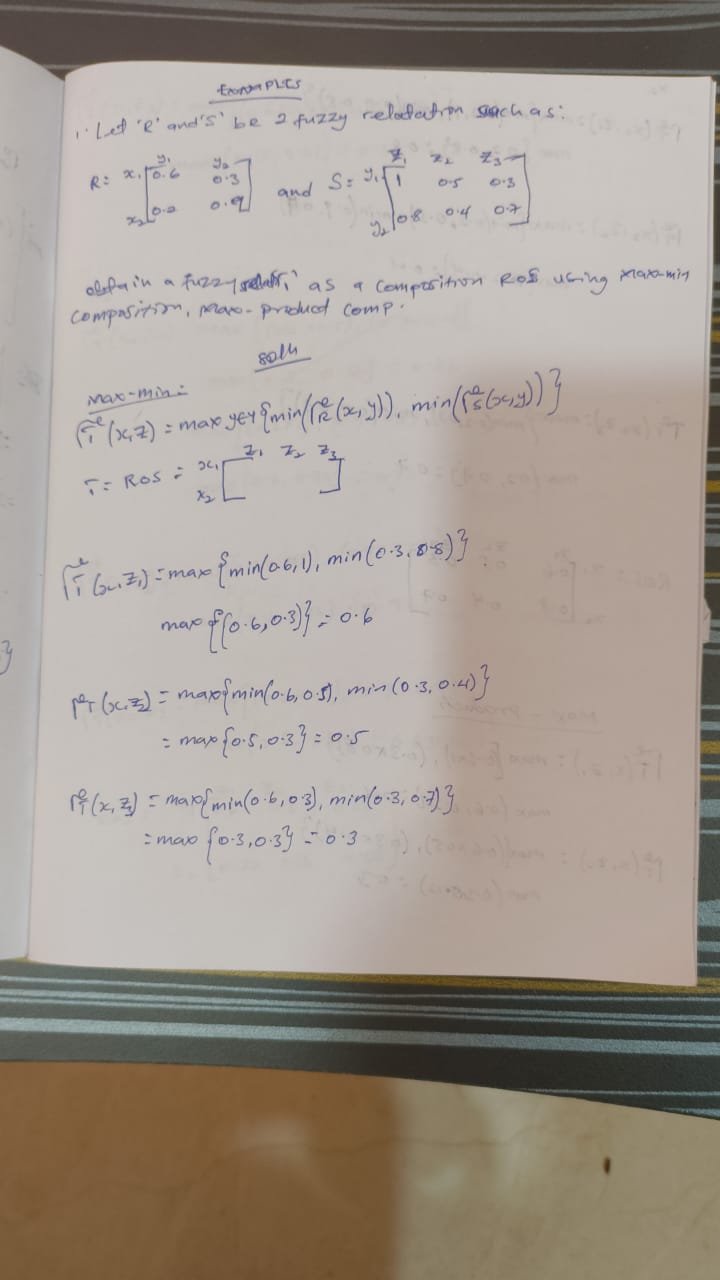 EXAMPLES
1. Let 'R' and 'S' be 2 fuzzy relatation such as:
y₁ y₂ z₁ z₂ z₃
R = x₁ [0.6 0.3] and S = y₁ [1 0.5 0.3]
x₂ [0.2 0.9] y₂ [0.8 0.4 0.7]
obtain a fuzzy as a composition RoS using max-min
composition, max-product comp.
soln
Max-min:
(x,z) = max y∈Y {min( (x,y)), min( (x,y))}
z₁ z₂ z₃
T = RoS = x₁ [ ]
x₂
(x₁,z₁) = max {min(0.6,1), min(0.3,0.8)}
max {(0.6,0.3)} = 0.6
(x₁,z₂) = max{min(0.6,0.5), min(0.3,0.4)}
= max {0.5,0.3} = 0.5
(x₁,z₃) = max{min(0.6,0.3), min(0.3,0.7)}
= max {0.3,0.3} = 0.3